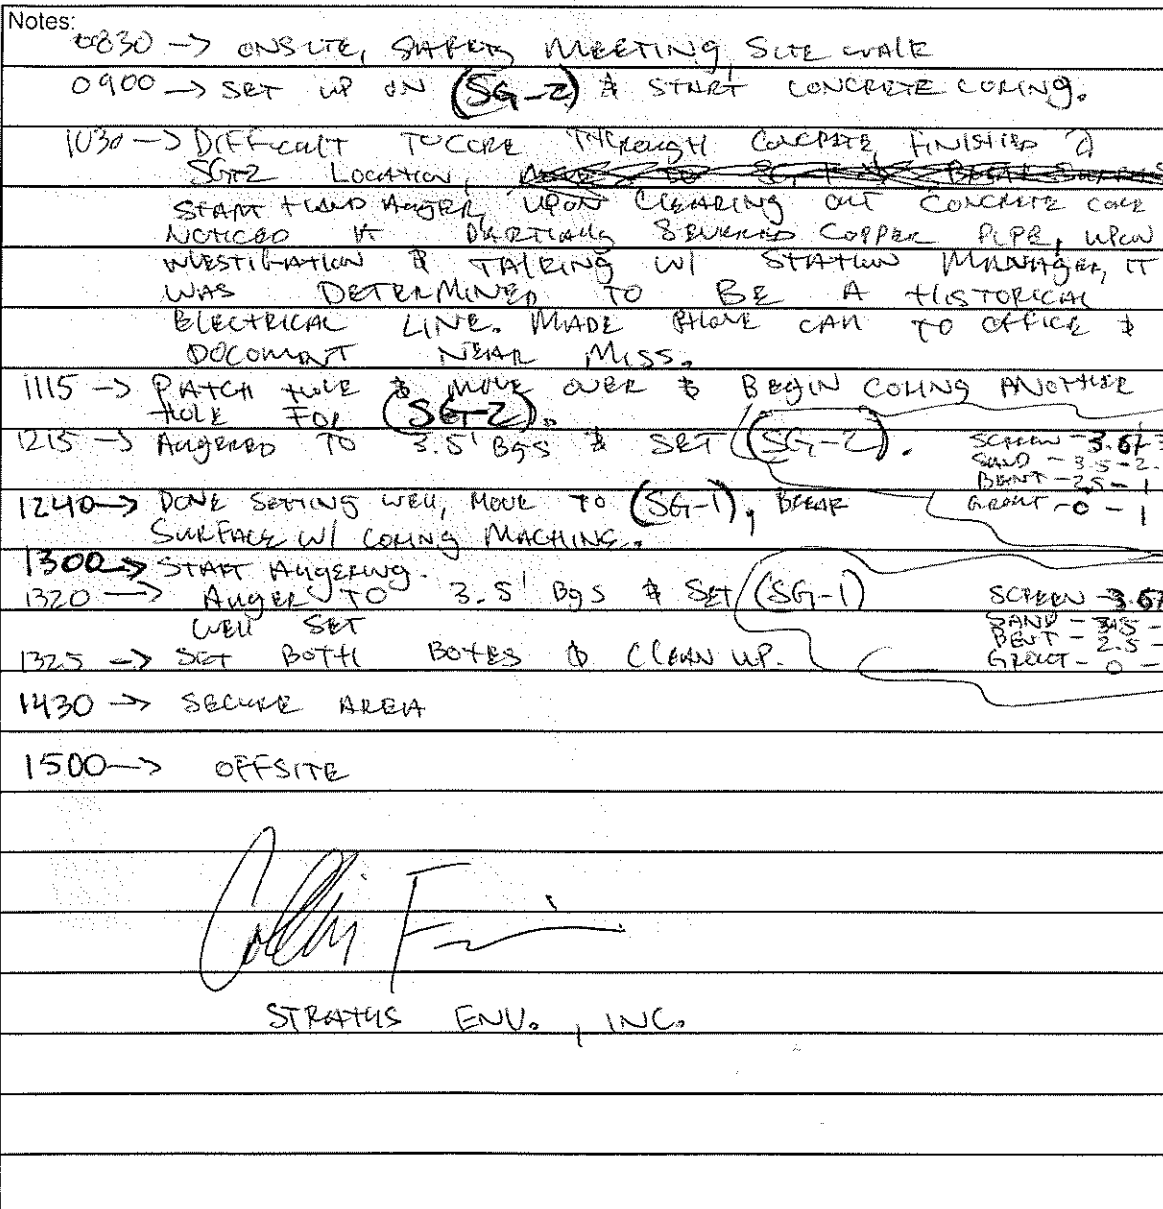 Notes:
0830 -> ONSITE, SAFETY MEETING, SITE WALK
0900 -> SET UP ON (SG-2) & START CONCRETE CORING.
1030 -> DIFFICULT TO CORE THROUGH CONCRETE, FINISHED @
SG-2 LOCATION,
START HAND AUGER, UPON CLEARING OUT CONCRETE CORE
NOTICED A PARTIALLY SEVERED COPPER PIPE, UPON
INVESTIGATION & TALKING W/ STATION MANAGER, IT
WAS DETERMINED TO BE A HISTORICAL
ELECTRICAL LINE. MADE PHONE CALL TO OFFICE &
DOCUMENT NEAR MISS.
1115 -> PATCH HOLE & MOVE OVER & BEGIN CORING ANOTHER
HOLE FOR (SG-2).
1215 -> AUGERED TO 3.5' BgS & SET (SG-2). SCREEN - 3.
SAND - 3.5 - 2.
BENT - 2.5 - 1
GROUT - 0 - 1
1240 -> DONE SETTING WELL, MOVE TO (SG-1), BREAK
SURFACE W/ CORING MACHINE.
1300 -> START AUGERING.
1320 -> AUGER TO 3.5' BgS & SET (SG-1) SCREEN - 3.
WELL SET SAND - 3.5 -
BENT - 2.5 -
1325 -> SET BOTH BOXES & CLEAN UP. GROUT - 0 -
1430 -> SECURE AREA
1500 -> OFFSITE
STRATUS ENV., INC.